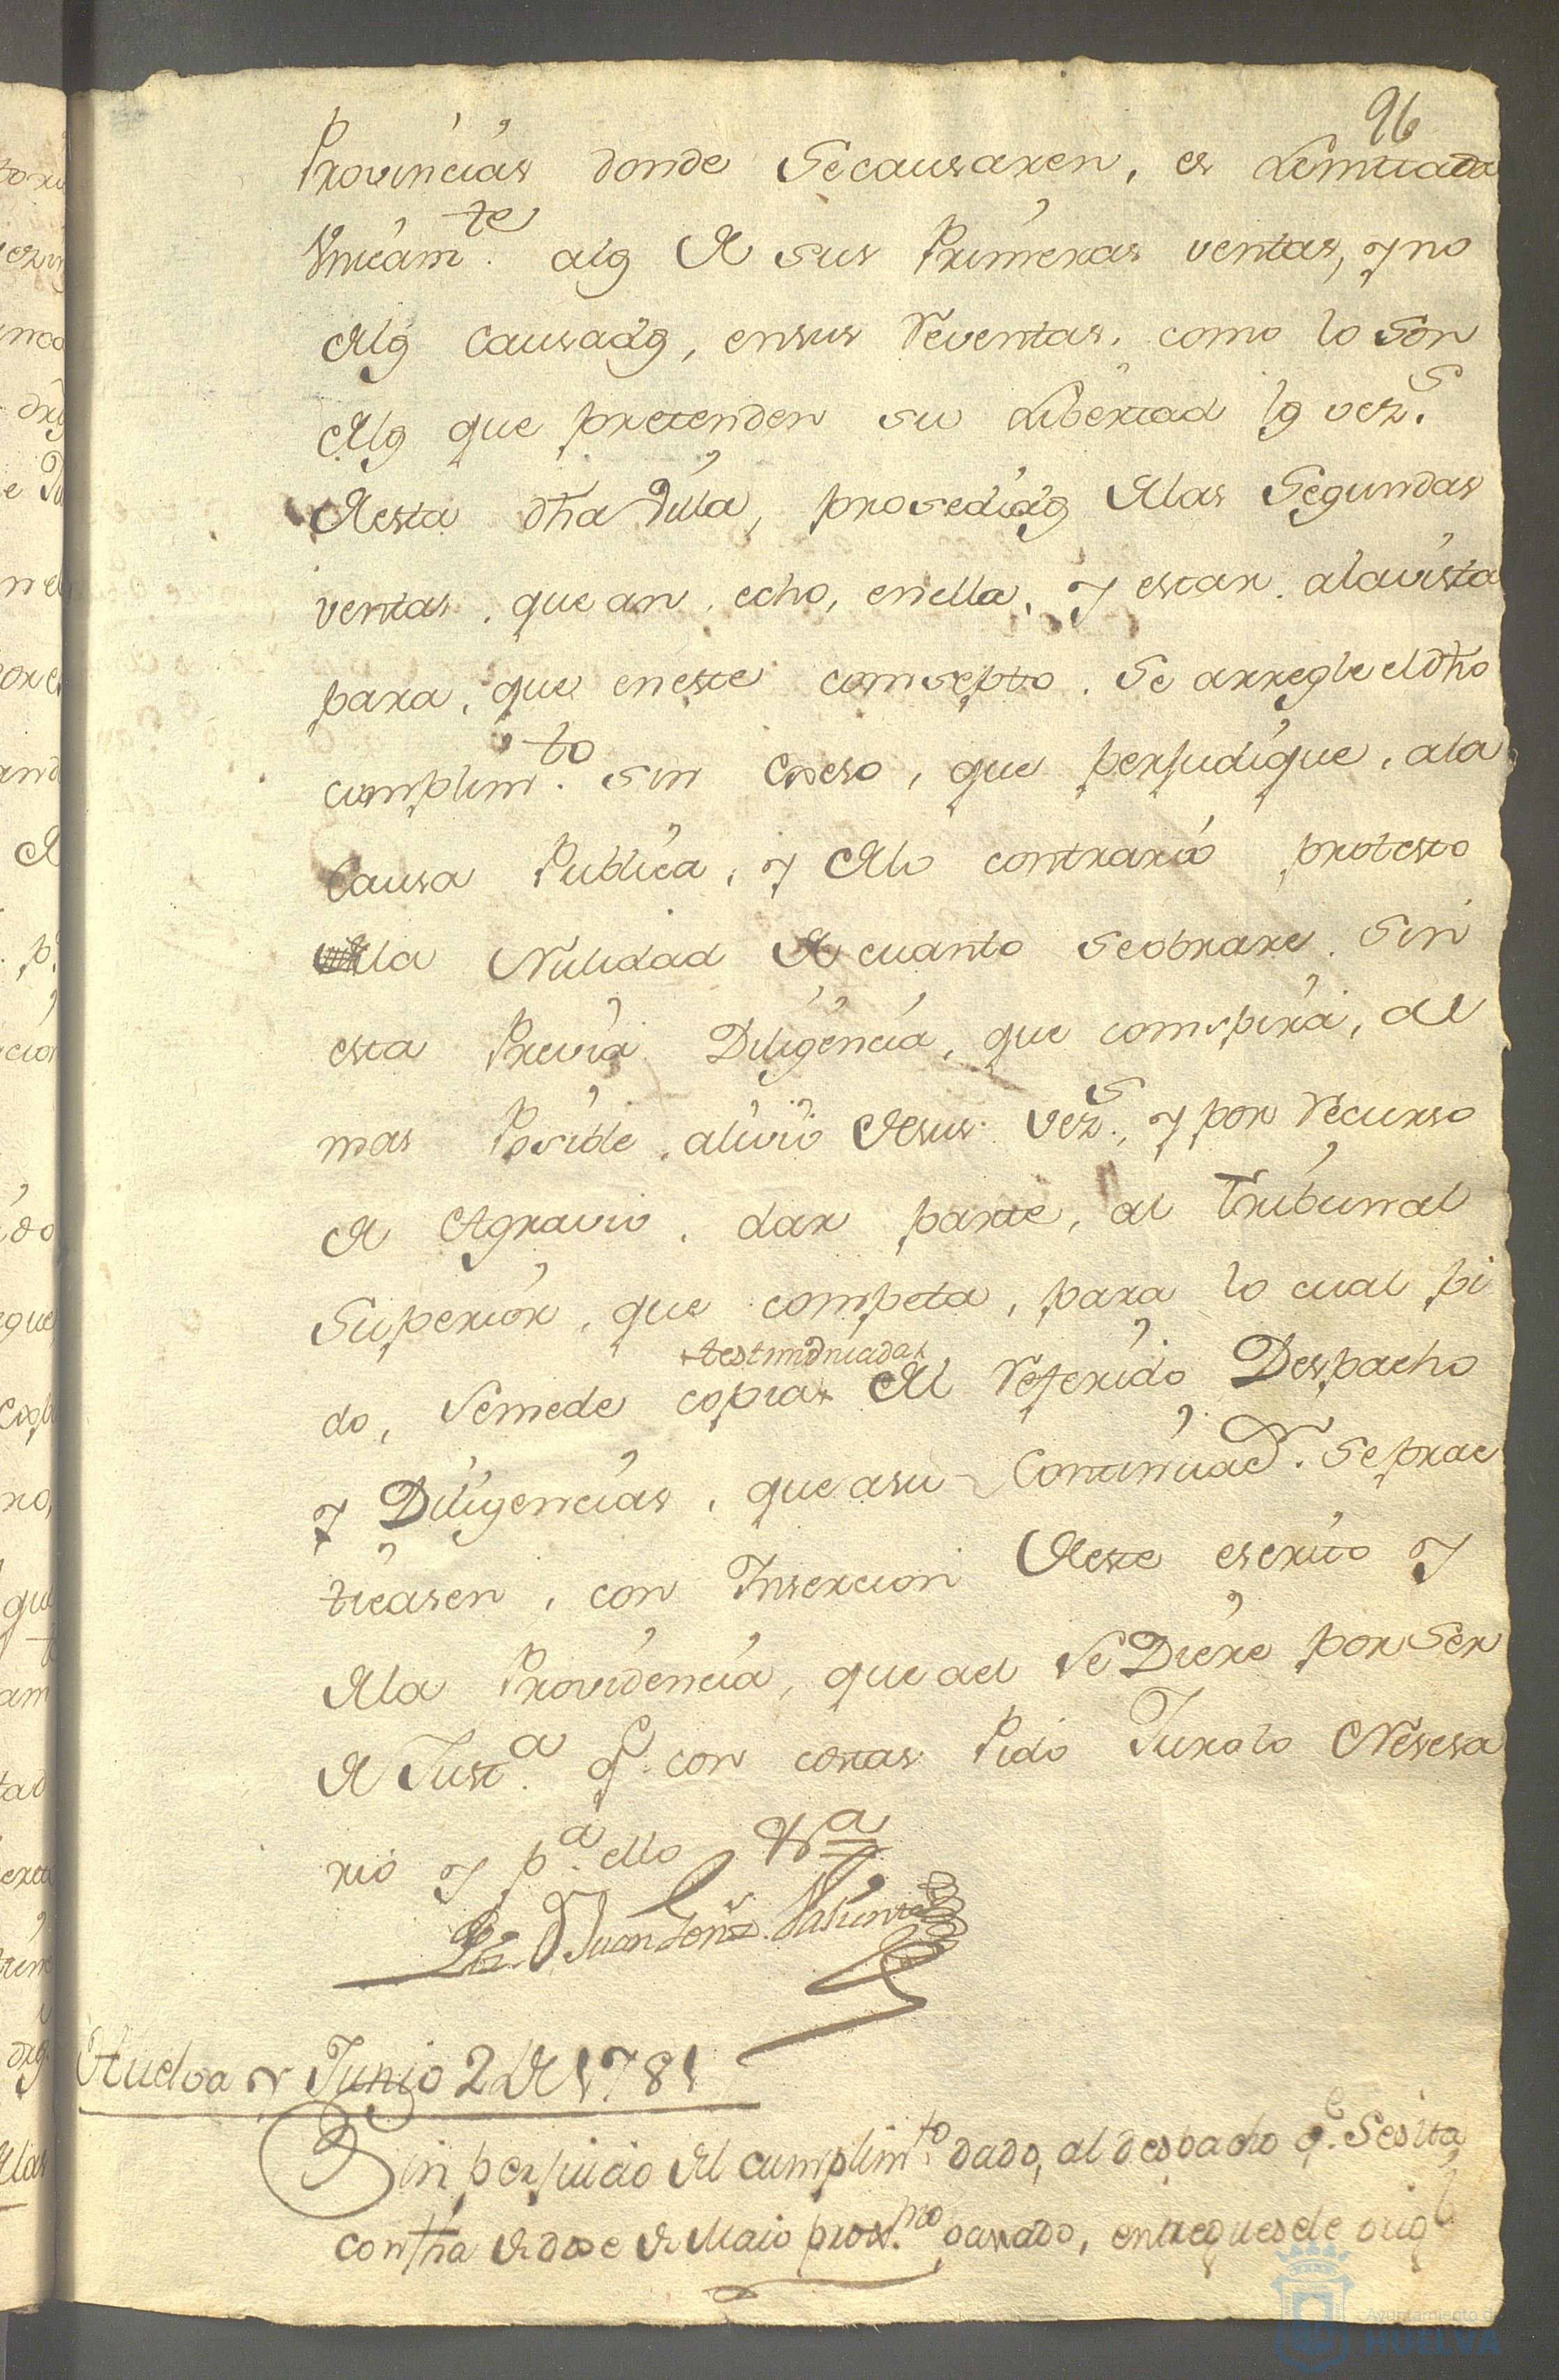 96
Provincias donde Secausaren, es Limitada
Unicamte. alos de sus Primeras ventas, y no
delos Causados, ensus Reventas. como lo son
delos que pretenden su Libertad los vezs.
desta dha Villa, prosedidos delas Segundas
ventas, que an, echo, enella, y estar. alavista
para, que eneste comsepto. Se arregle eldho
cumplimto. sin exseso, que perjudique, ala
Causa Publica, y delo contrario protesto
la Nulidad de cuanto seobrare. Sin
esta Previa Diligencia, que comspira, al
mas Posible. alivio desus vezs., y por Recurso
de Agravio. dar parte, al Tribunal
Superior, que competa, para lo cual pi
testimoniadas
do, Semede copias del Referido Despacho
y Diligencias, que asu Continuacn. Seprac
ticasen, con Insercion deste escrito y
dela Providencia, que ael Se Diere por Ser
de Justa. qe. con costas Pido Juro lo Nesesa
rio y pa. ello &a
Liz. Dn Juan
Huelva y Junio 2 de 1781
Sin perjuicio del cumplimto. dado, al despacho qe. Sesita,
confha de dose de Maio proxmo. pasado, entreguesele origl
Ayuntamiento de
HUELVA